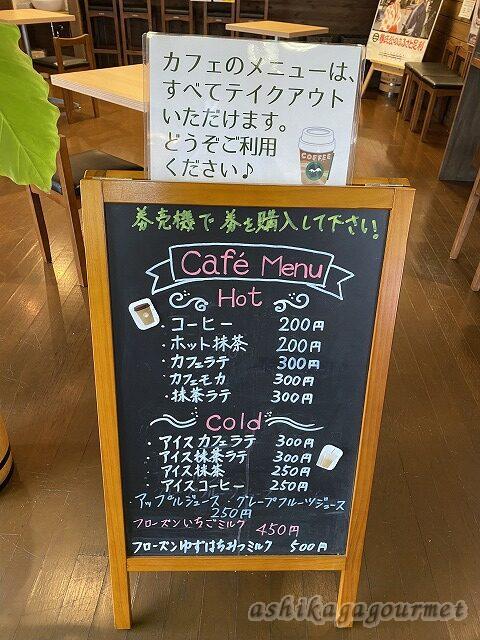 カフェのメニューは、
すべてテイクアウト
いただけます。
どうぞご利用
ください♪
COFFEE
券売機で券を購入して下さい!
Café Menu
Hot
・コーヒー 200円
・ホット抹茶 200円
・カフェラテ 300円
・カフェモカ 300円
・抹茶ラテ 300円
Cold
・アイスカフェラテ 300円
・アイス抹茶ラテ 300円
・アイス抹茶 250円
・アイスコーヒー 250円
アップルジュース・グレープフルーツジュース
250円
フローズンいちごミルク 450円
フローズンゆずはちみつミルク 500円
ashikagagourmet